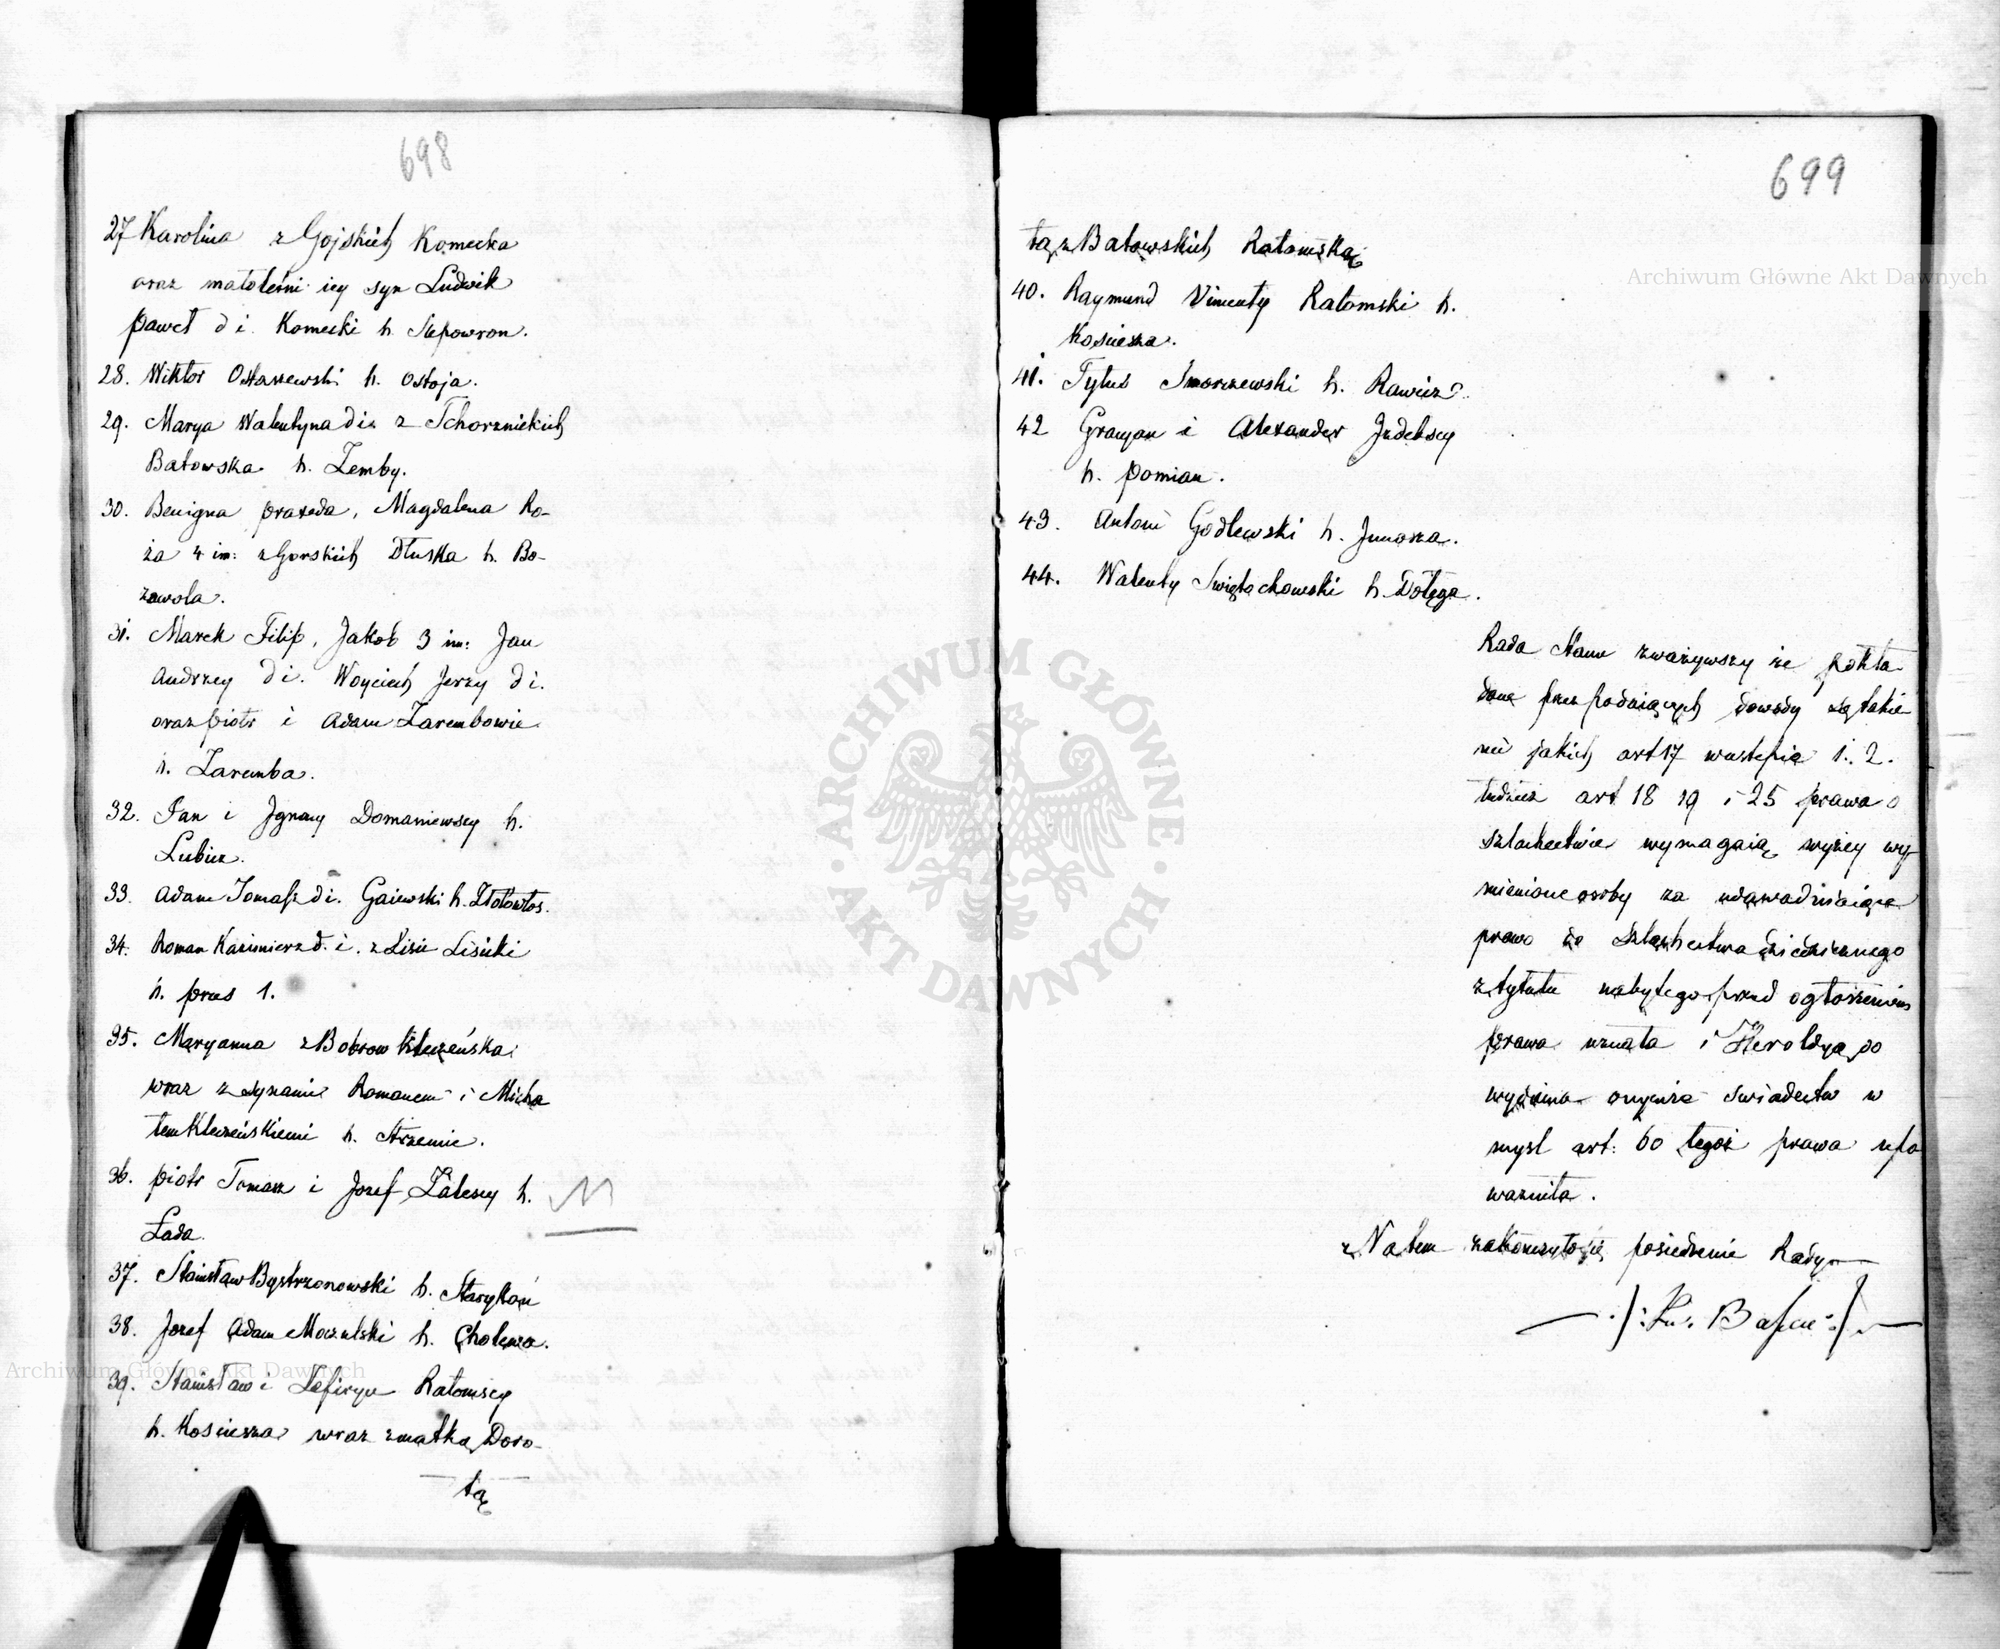 698
27 Karolina z Gojskich Komecka
oraz małoletni iey syn Ludwik
Paweł d i. Komecki h. Slepowron.
28. Wiktor Ostaszewski h. Ostoja.
29. Marya Walentyna di z Tchorznickich
Batowska h. Zemby.
30. Benigna Praxeda, Magdalena Ro-
za 4 im: z Gorskich Dłuska h. Bo-
zawola.
31. Marek Filip, Jakob 3 im: Jan
Andrzey d i. Woyciech Jerzy d i.
oraz Piotr i Adam Zarembowie
h. Zaremba.
32. Jan i Ignacy Domaniewscy h.
Lubicz.
33. Adam Tomasz d i. Gaiewski h. Złotowłos.
34. Roman Kazimierz d. i. z Lisic Lisicki
h. Prus 1.
35. Maryanna z Bobrow Kleczeńska
wraz z synami Romanem i Micha
łem Kleczeńskiemi h. Strzemie.
36. Piotr Tomasz i Jozef Zalescy h.
Łada.
37. Stanisław Bystrzonowski h. Starykoń
38. Jozef Adam Moczulski h. Cholewa.
39. Stanisław i Zefiryn Ratomscy
h. Kosciesza wraz z matką Doro-
tą
699
tą z Batowskich Ratomską
40. Raymund Vincenty Ratomski h.
Kosciesza.
41. Tytus Smorzewski h. Rawicz
42 Gracyan i Alexander Jzdebscy
h. Pomian.
43. Antoni Godlewski h. Junosza.
44. Walenty Swiętochowski h. Dołęga.
Rada Stanu zważywszy że pokła
dane przez Podaiących dowody są takie
mi jakich art 17 wustępie 1. 2.
tudzież art 18 19 i 25 prawa o
szlachectwie wymagaią wyżey wy
mienione osoby za udowadniaiące
prawo do szlachectwa dziedzicznego
z tytułu nabytego przed ogłoszeniem
prawa uznała i Heroldyą do
wydania onymże swiadectw w
mysl art: 60 tegoż prawa upo
ważniła.
Na tem zakończyło się posiedzenie Rady
Archiwum Główne Akt Dawnych
Archiwum Główne Akt Dawnych
ARCHIWUM GŁÓWNE · AKT DAWNYCH ·